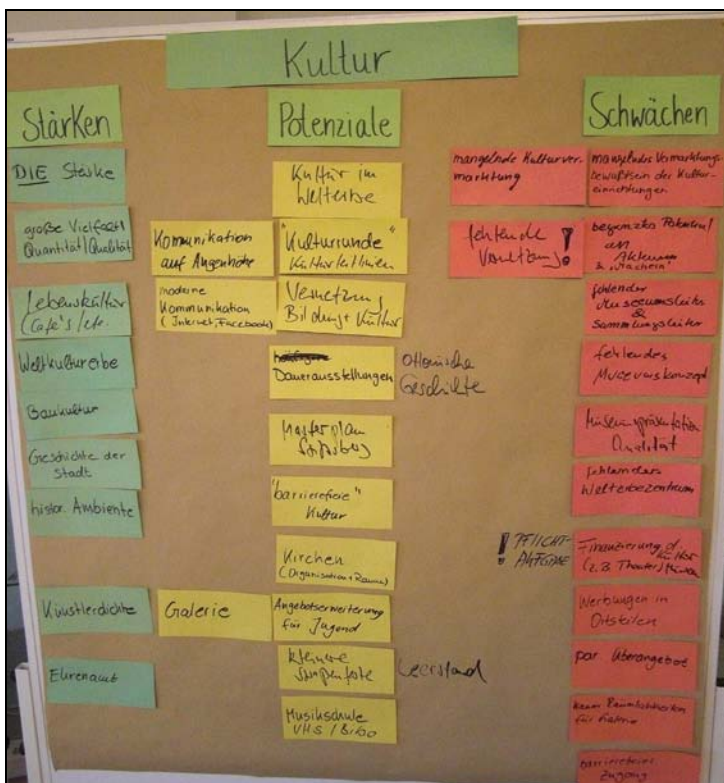 Kultur
Stärken
DIE Stärke
große Vielfalt/
Quantität/Qualität
Lebenskultur
(Café's/etc.
Weltkulturerbe
Baukultur
Geschichte der
Stadt
histor. Ambiente
Künstlerdichte
Ehrenamt
Potenziale
Kultur im
Welterbe
Kommunikation
auf Augenhöhe
"Kulturrunde"
moderne
Kommunikation
(Internet, Facebook)
Vernetzung
Bildung + Kultur
Dauerausstellungen
Ottonische
Geschichte
Masterplan
"barrierefreie"
Kultur
Kirchen
(Organisation + Räume)
Galerie
Angebotserweiterung
für Jugend
kleinere
Leerstand
Musikschule
VHS / Bibo
Schwächen
mangelnde Kulturver-
marktung
mangelndes Vermarktungs-
bewußtsein der Kultur-
einrichtungen
fehlende
Vernetzung !
begrenztes Potenzial
an
Akteuren
& "Machern"
fehlender
Museumsleiter
&
Sammlungsleiter
fehlendes
Museumskonzept
Museumspräsentation
Qualität
fehlendes
Welterbezentrum
! PFLICHT-
AUFGABE
Finanzierung d.
Kultur
(z.B. Theater)
Werbungen in
Ortsteilen
par Überangebote
keine Räumlichkeiten
für
barrierefreier
Zugang